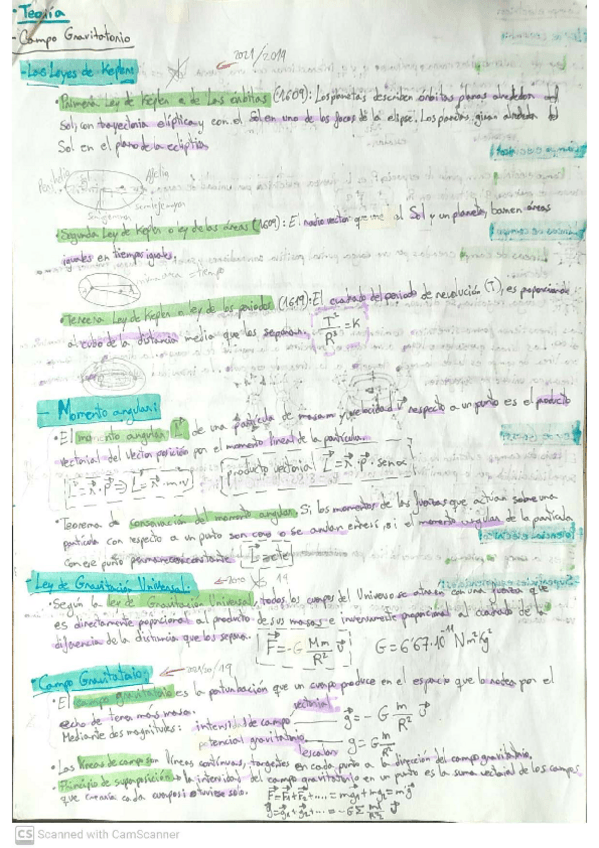 - Teoría
- Campo Gravitatorio
2021/2019
- Las Leyes de Kepler:
• Primera Ley de Kepler o de las órbitas (1609): Los planetas describen órbitas planas alrededor del
Sol, con trayectoria elíptica y con el Sol en uno de los focos de la elipse. Los planetas giran alrededor del
Sol en el plano de la eclíptica
Afelio
Sol
semieje mayor
• Segunda Ley de Kepler o ley de las áreas (1609): El radio vector que une al Sol y un planeta, barren áreas
iguales en tiempos iguales.
• Tercera Ley de Kepler o ley de los periodos (1619): El cuadrado del periodo de revolución (T), es proporcional
al cubo de la distancia media que los separan. T²/R³ = K
- Momento angular:
• El momento angular L de una partícula de masa m y velocidad v respecto a un punto es el producto
vectorial del vector posición por el momento lineal de la partícula.
producto vectorial L = r · p · sen α
• Teorema de conservación del momento angular. Si los momentos de las fuerzas que actúan sobre una
partícula con respecto a un punto son cero o se anulan entre sí, el momento angular de la partícula
con ese punto permanece constante L = cte
- Ley de Gravitación Universal: 19
• Según la ley de Gravitación Universal, todos los cuerpos del Universo se atraen con una fuerza que
es directamente proporcional al producto de sus masas e inversamente proporcional al cuadrado de la
diferencia de la distancia que los separa. F = -G Mm/R² u G = 6'67·10⁻¹¹ N m²/kg²
- Campo Gravitatorio:
• El campo gravitatorio es la perturbación que un cuerpo produce en el espacio que lo rodea por el
echo de tener más masa. vectorial
Mediante dos magnitudes: intensidad de campo g = -G m/R² u
potencial gravitatorio
escalar
• Las líneas de campo son líneas continuas, tangentes en cada punto a la dirección del campo gravitatorio.
• Principio de superposición la intensidad del campo gravitatorio en un punto es la suma vectorial de los campos
que crearía cada cuerpo si estuviese solo. F = F₁ + F₂ + .... = mg₁ + mg₂ = mg
CS Scanned with CamScanner